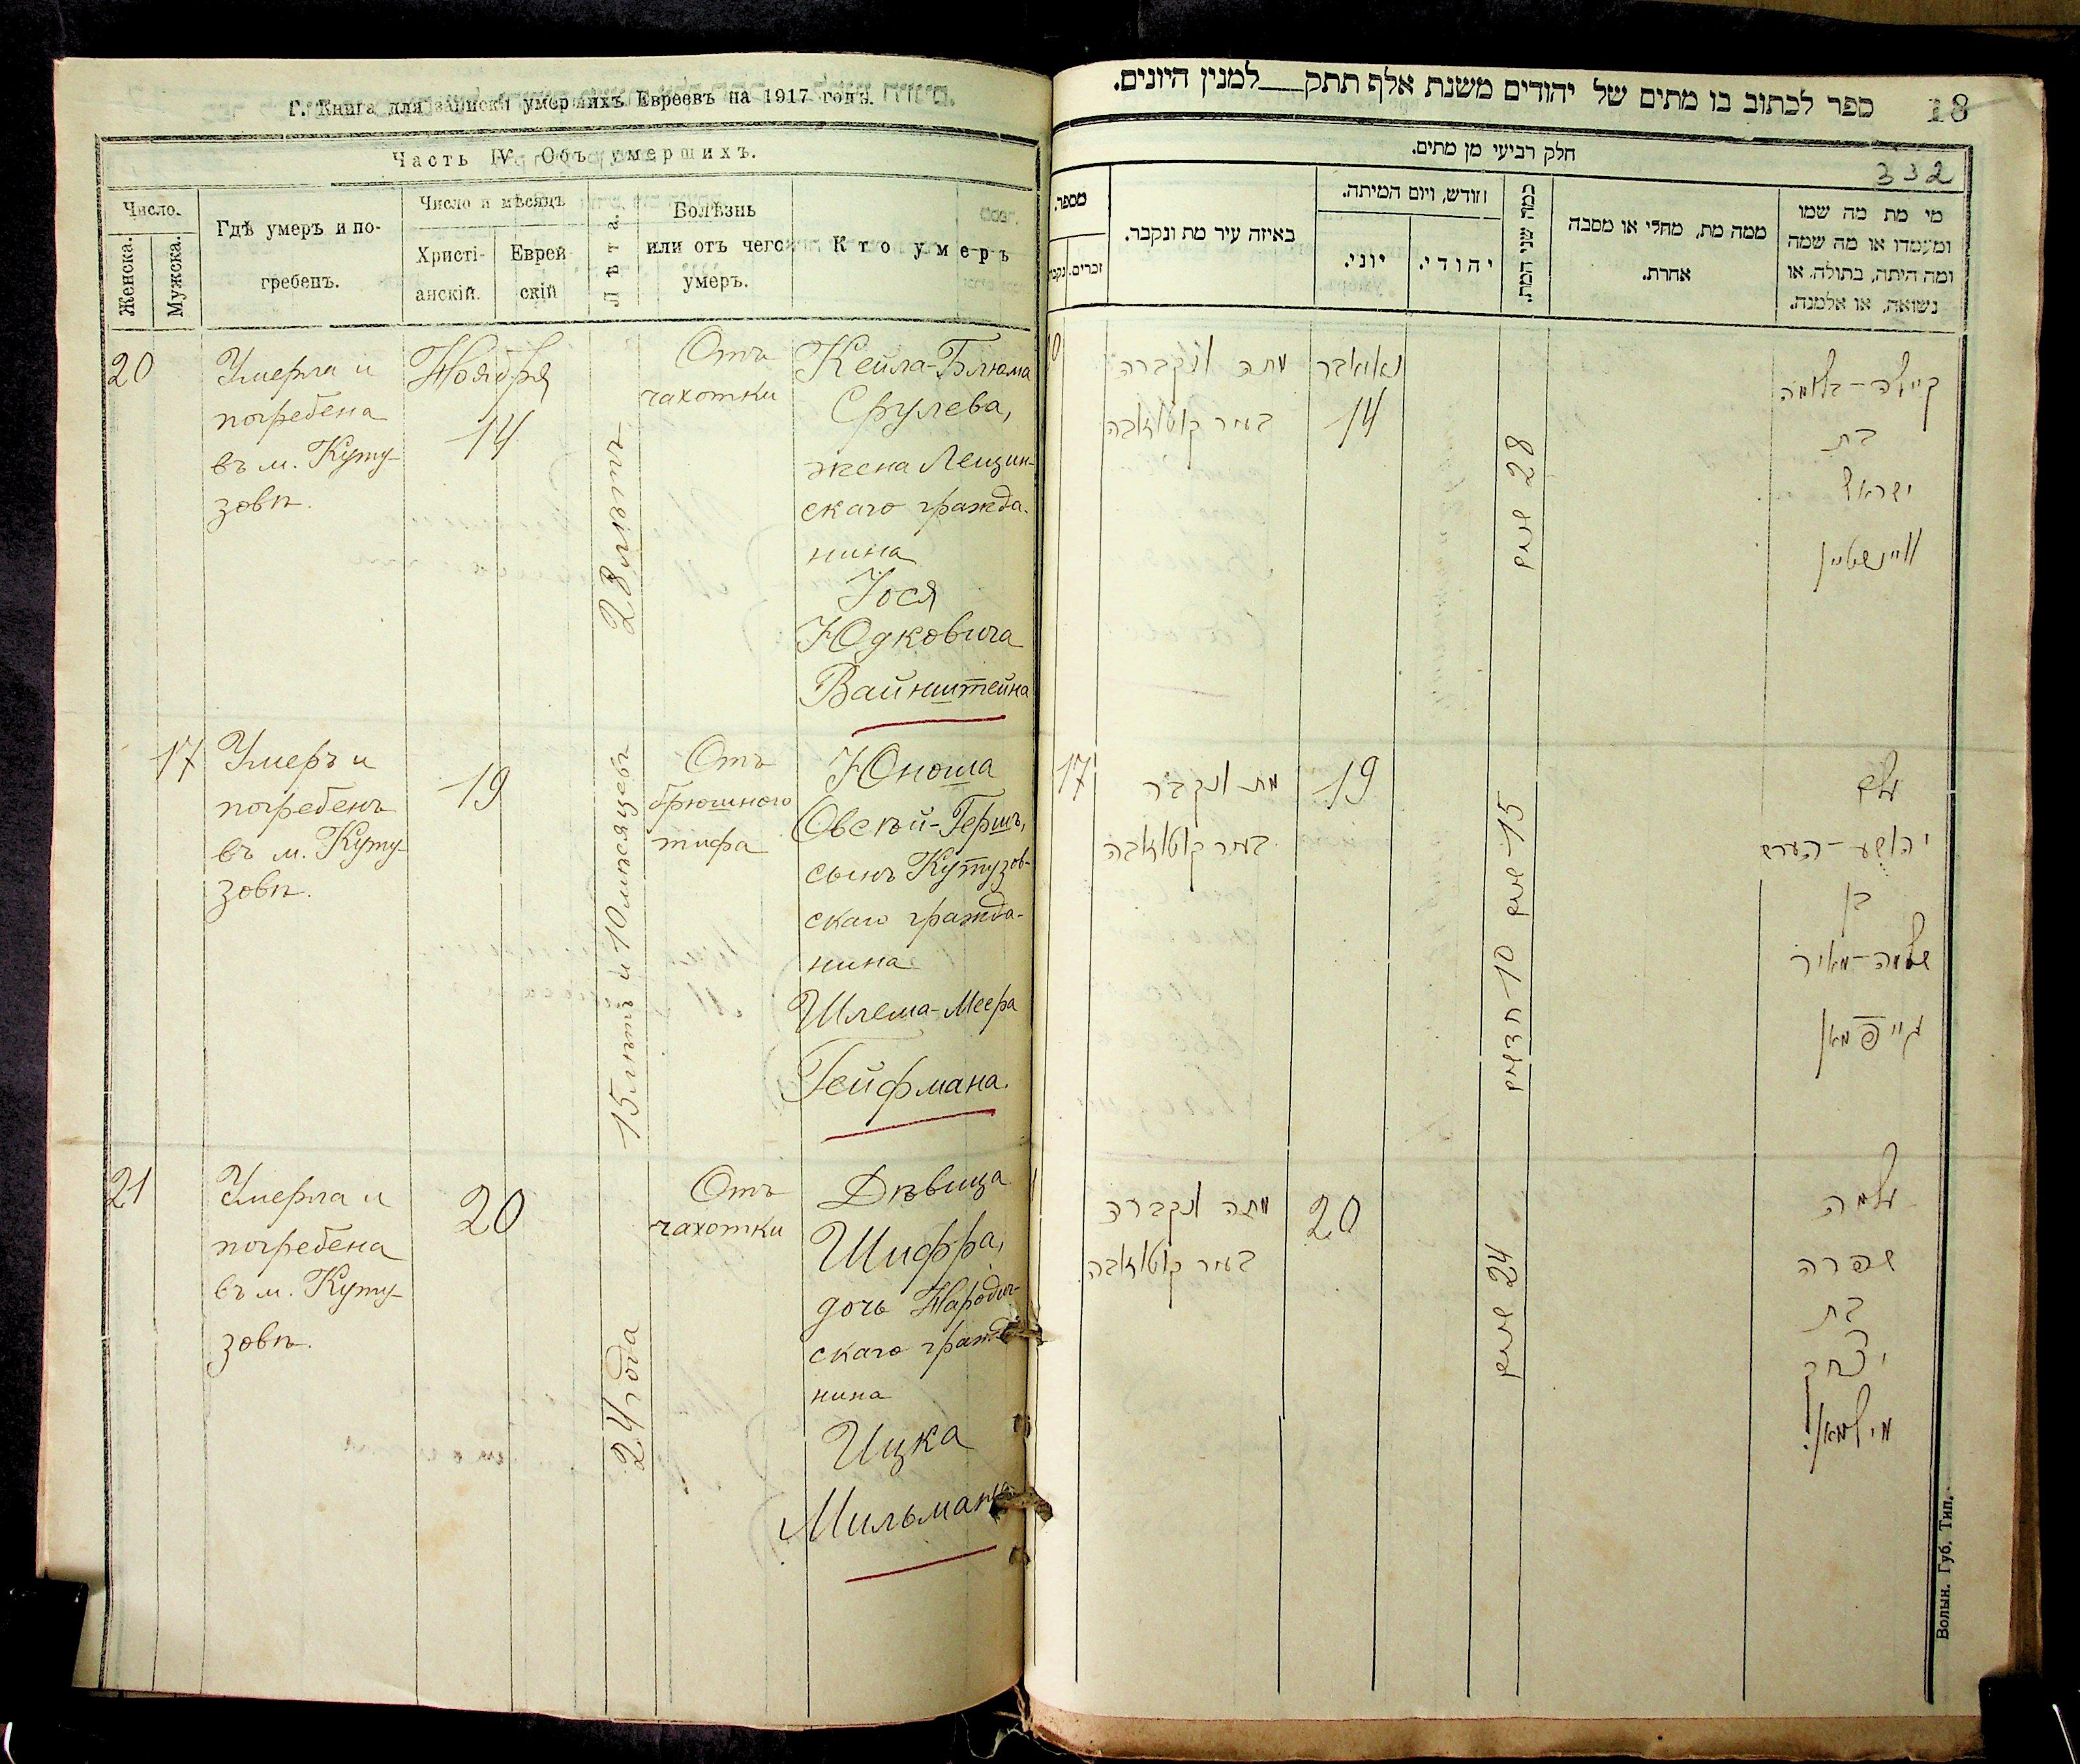 Г. Книга для записки умершихъ Евреевъ на 1917 годъ.
Часть IV. Объ умершихъ.
Число.
Женска.
Мужска.
Гдѣ умеръ и по-
гребенъ.
Число и мѣсяцъ
Христі-
анскій.
Еврей
скій
Лѣта.
Болѣзнь
или отъ чего
умеръ.
Кто умеръ
20
Умерла и
погребена
въ м. Куту-
зовѣ.
Ноября
14
28 лѣтъ
Отъ
чахотки
Кейла-Блюма
Срулева,
жена Лещин-
скаго гражда-
нина
Іося
Юдковича
Вайнштейна
17
Умеръ и
погребенъ
въ м. Куту-
зовѣ.
19
15 лѣтъ и 10 мѣсяцевъ
Отъ
брюшного
тифа
Юноша
Овсѣй-Гершъ,
сынъ Кутузов-
скаго гражда-
нина
Шлема-Меера
Гейфмана.
21
Умерла и
погребена
въ м. Куту-
зовѣ.
20
24 года
Отъ
чахотки
Дѣвица
Шифра,
дочь Народич-
скаго гражд
нина
Ицка
Мильмана
ספר לכתוב בו מתים של יהודים משנת אלף תתק___למנין היונים.
18
חלק רביעי מן מתים.
332
מי מת מה שמו
ומעמדו או מה שמה
ומה היתה, בתולה, או
נשואה, או אלמנה.
ממה מת, מחלי או מסבה
אחרת.
כמה שני המת.
חודש, ויום המיתה.
יהודי.
יוני.
באיזה עיר מת ונקבר.
מספר.
זכרים.
קיילה-בלומה
בת
ישראל
וויינשטיין
28 שנים
נאיאבר
14
מתה ונקברה
בעיר קוטוזאבה
עלם
יהושע-הערש
בן
שלמה-מאיר
גייפמאן
15 שנים 10 חדשים
19
מת ונקבר
בעיר קוטוזאבה
17
עלמה
שפרה
בת
יצחק
מילמאן
24 שנים
20
מתה ונקברה
בעיר קוטוזאבה
Волын. Губ. Тип.